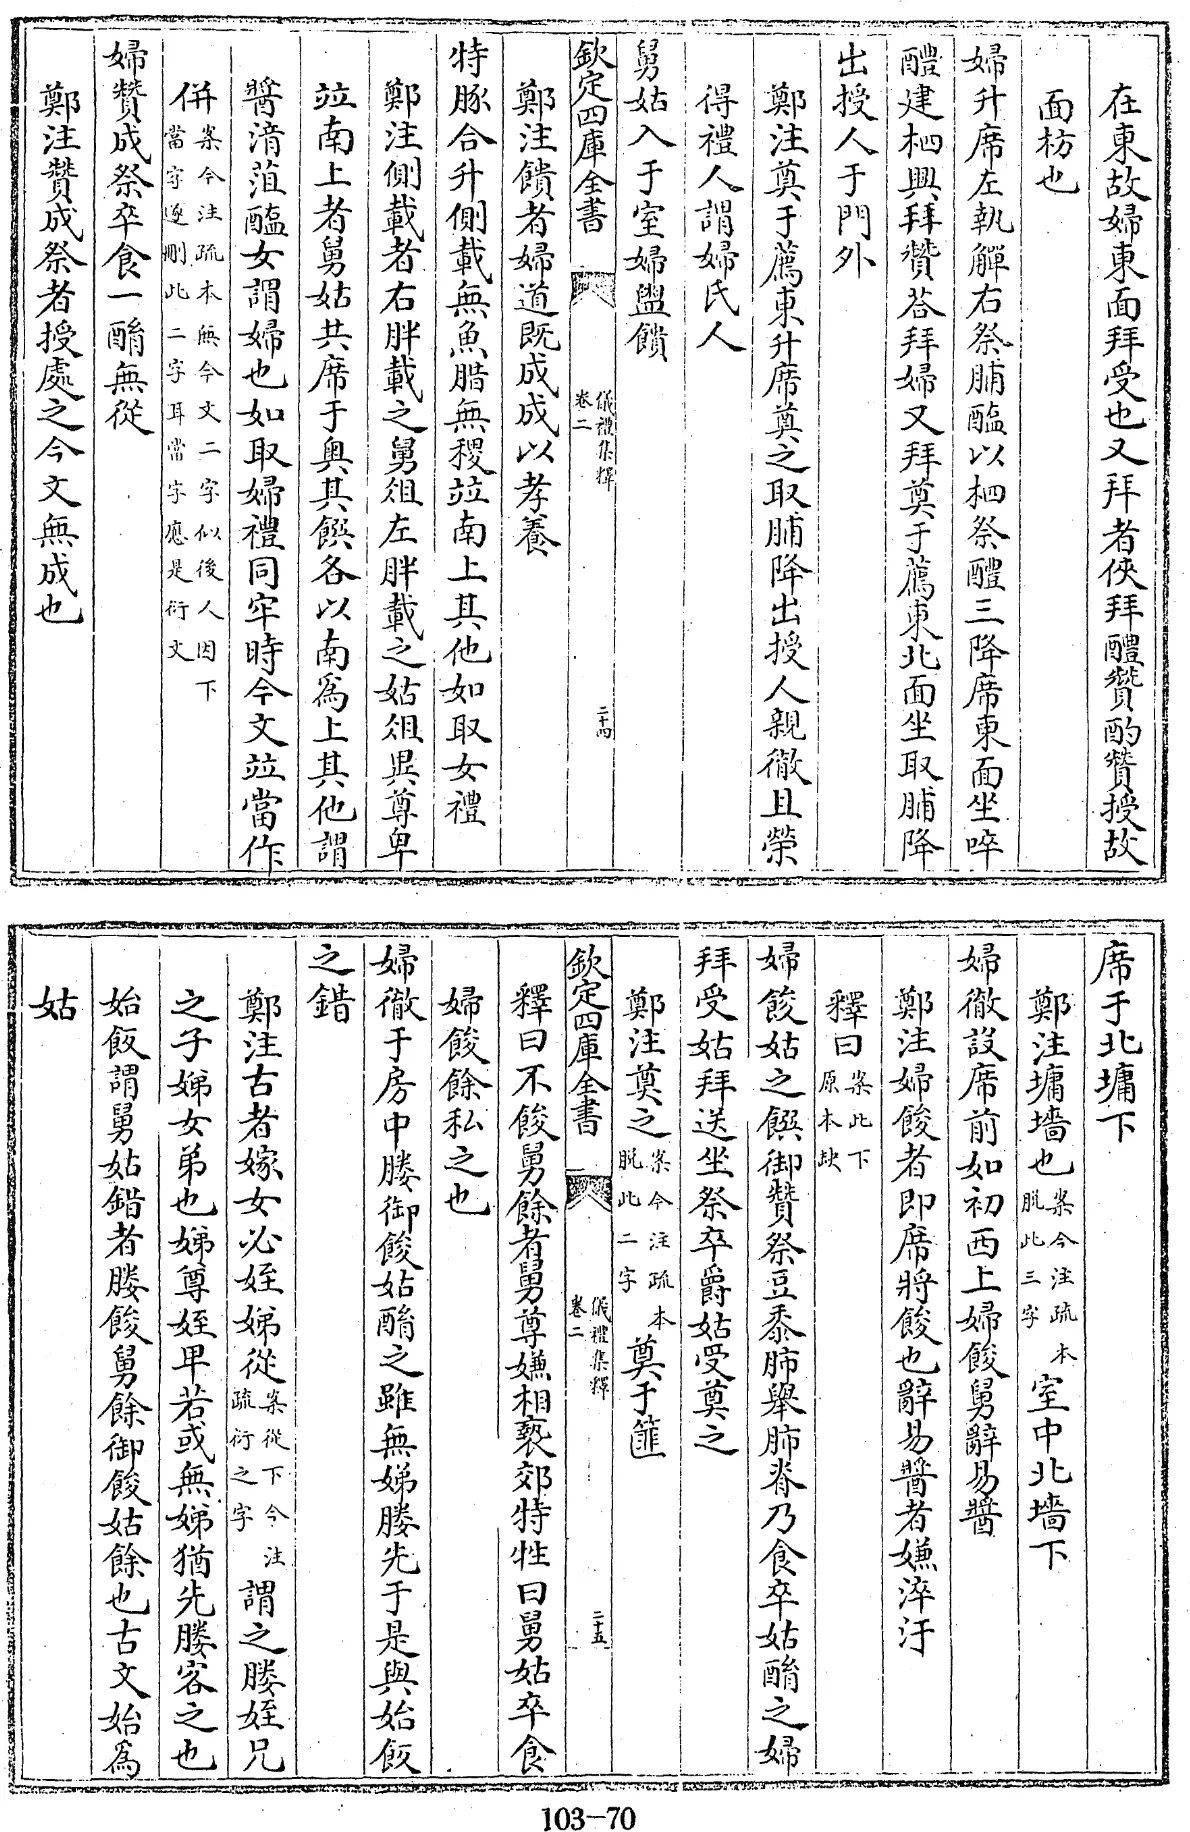 在東故婦東面拜受也又拜者俠拜醴贊酌贊授故
面枋也
婦升席左執觶右祭脯醢以柶祭醴三降席東面坐啐
醴建柶興拜贊荅拜婦又拜奠于薦東北面坐取脯降
出授人于門外
鄭注奠于薦東升席奠之取脯降出授人親徹且榮
得禮人謂婦氏人
舅姑入于室婦盥饋
欽定四庫全書
儀禮集釋
卷二
二十四
鄭注饋者婦道既成成以孝養
特豚合升側載無魚腊無稷竝南上其他如取女禮
鄭注側載者右胖載之舅俎左胖載之姑俎異尊卑
竝南上者舅姑共席于奧其饌各以南爲上其他謂
醬湆菹醢女謂婦也如取婦禮同牢時今文竝當作
併案今注疏本無今文二字似後人因下
當字遂刪此二字耳當字應是衍文
婦贊成祭卒食一酳無從
鄭注贊成祭者授處之今文無成也
席于北墉下
鄭注墉墻也案今注疏本脱此三字室中北墻下
婦徹設席前如初西上婦餕舅辭易醬
鄭注婦餕者即席將餕也辭易醬者嫌淬汙
釋曰案此下原本缺
婦餕姑之饌御贊祭豆黍肺舉肺脊乃食卒姑酳之婦
拜受姑拜送坐祭卒爵姑受奠之
鄭注奠之案今注疏本脱此二字奠于篚
欽定四庫全書
儀禮集釋
卷二
二十五
釋曰不餕舅餘者舅尊嫌相褻郊特牲曰舅姑卒食
婦餕餘私之也
婦徹于房中媵御餕姑酳之雖無娣媵先于是與始飯
之錯
鄭注古者嫁女必姪娣從案從下今注疏衍之字謂之媵姪兄
之子娣女弟也娣尊姪卑若或無娣猶先媵客之也
始飯謂舅姑錯者媵餕舅餘御餕姑餘也古文始爲
姑
103-70